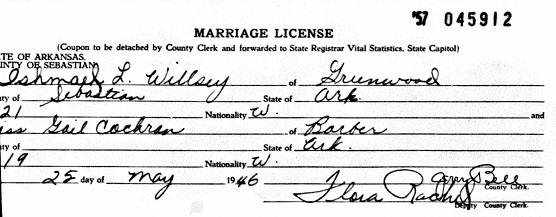 '57 045912
MARRIAGE LICENSE
(Coupon to be detached by County Clerk and forwarded to State Registrar Vital Statistics, State Capitol)
TE OF ARKANSAS,
NTY OF SEBASTIAN
Ishmael L. Willsey of Greenwood
ty of Sebastian State of Ark.
21 Nationality W. and
iss Gail Cochran of Barber
ty of State of Ark.
19 Nationality W.
25 day of May 1946 Jerry Bell
County Clerk.
Flora
Deputy County Clerk.